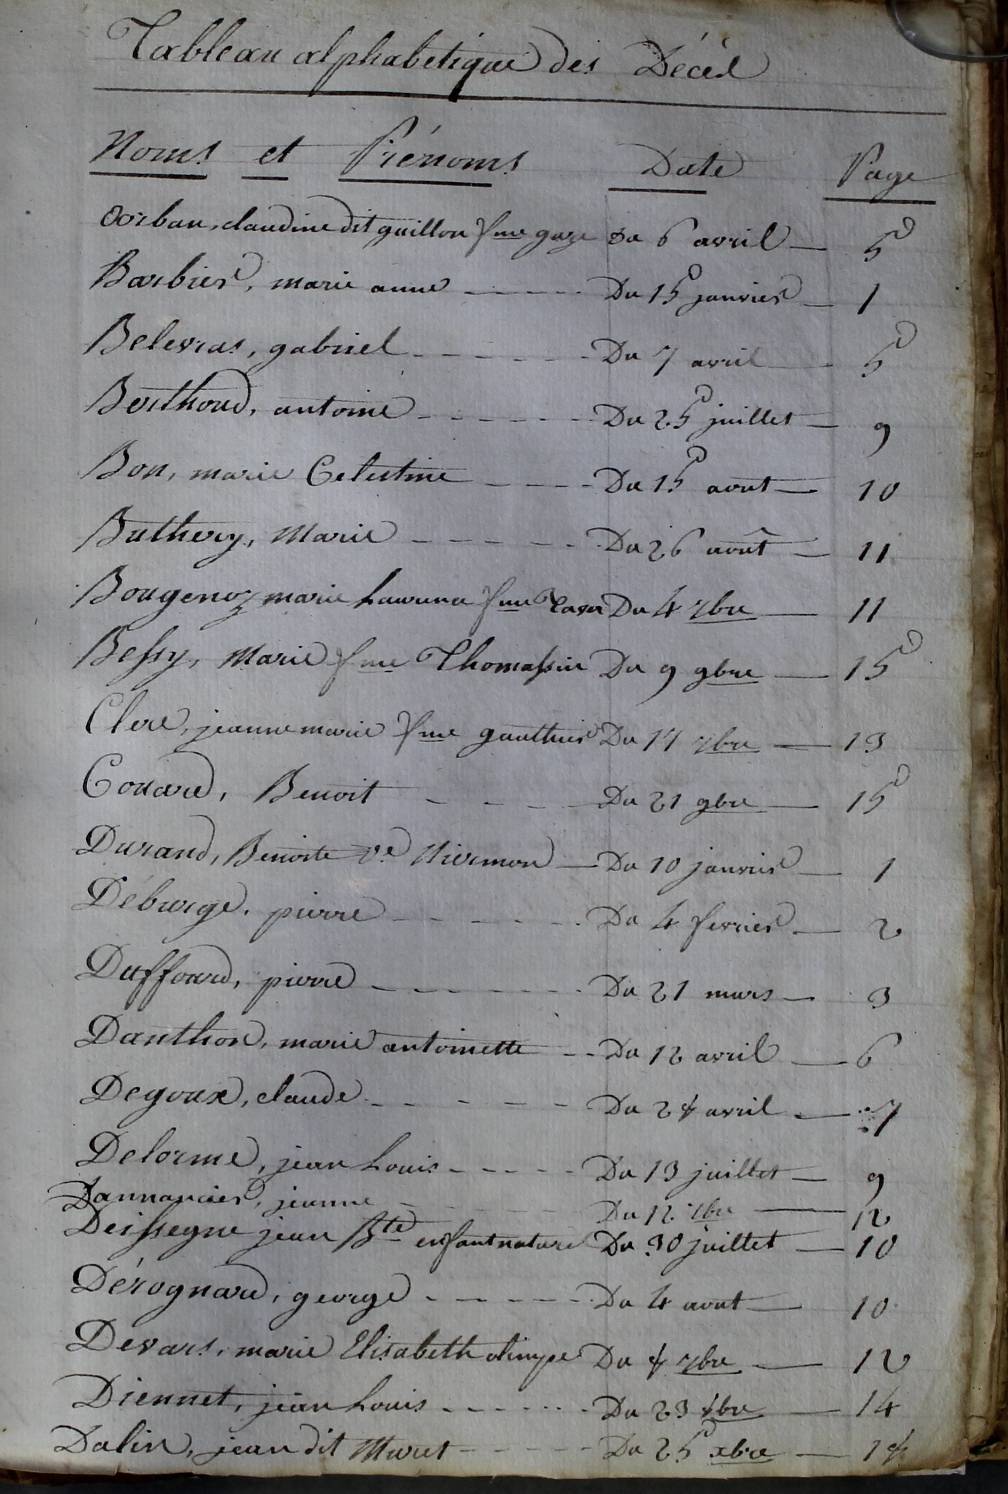 Tableau alphabétique des Décès
Noms et Prénoms Date Page
Orban, claudine dit guillon fme gaze Du 6 avril 5
Barbier, marie anne Du 15 janvier 1
Belevras, gabriel Du 7 avril 5
Berthoud, antoine Du 25 juillet 9
Bon, marie Celestine Du 15 aout 10
Buthery, Marie Du 26 août 11
Bougenoz marie fme Du 4 7bre 11
Bessy, Marie fme Thomassin Du 9 9bre 15
Clere, jeanne marie fme gauthier Du 17 7bre 13
Couard, Benoit Du 21 9bre 15
Durand, Benoite ve Miermon Du 10 janvier 1
Déburge, pierre Du 4 fevrier 2
Duffourd, pierre Du 21 mars 3
Danthon, marie antoinette Du 12 avril 6
Degoux, claude Du 24 avril 7
Delorme, jean Louis Du 13 juillet 9
Dannancier, jeanne Du 12 7bre 12
Deissegne jean Bte enfant naturel Du 30 juillet 10
Dérognard, george Du 4 aout 10
Devars, marie Elisabeth olimpe Du 4 7bre 12
Diennet, jean Louis Du 23 8bre 14
Dalin, jean dit Muret Du 25 xbre 18